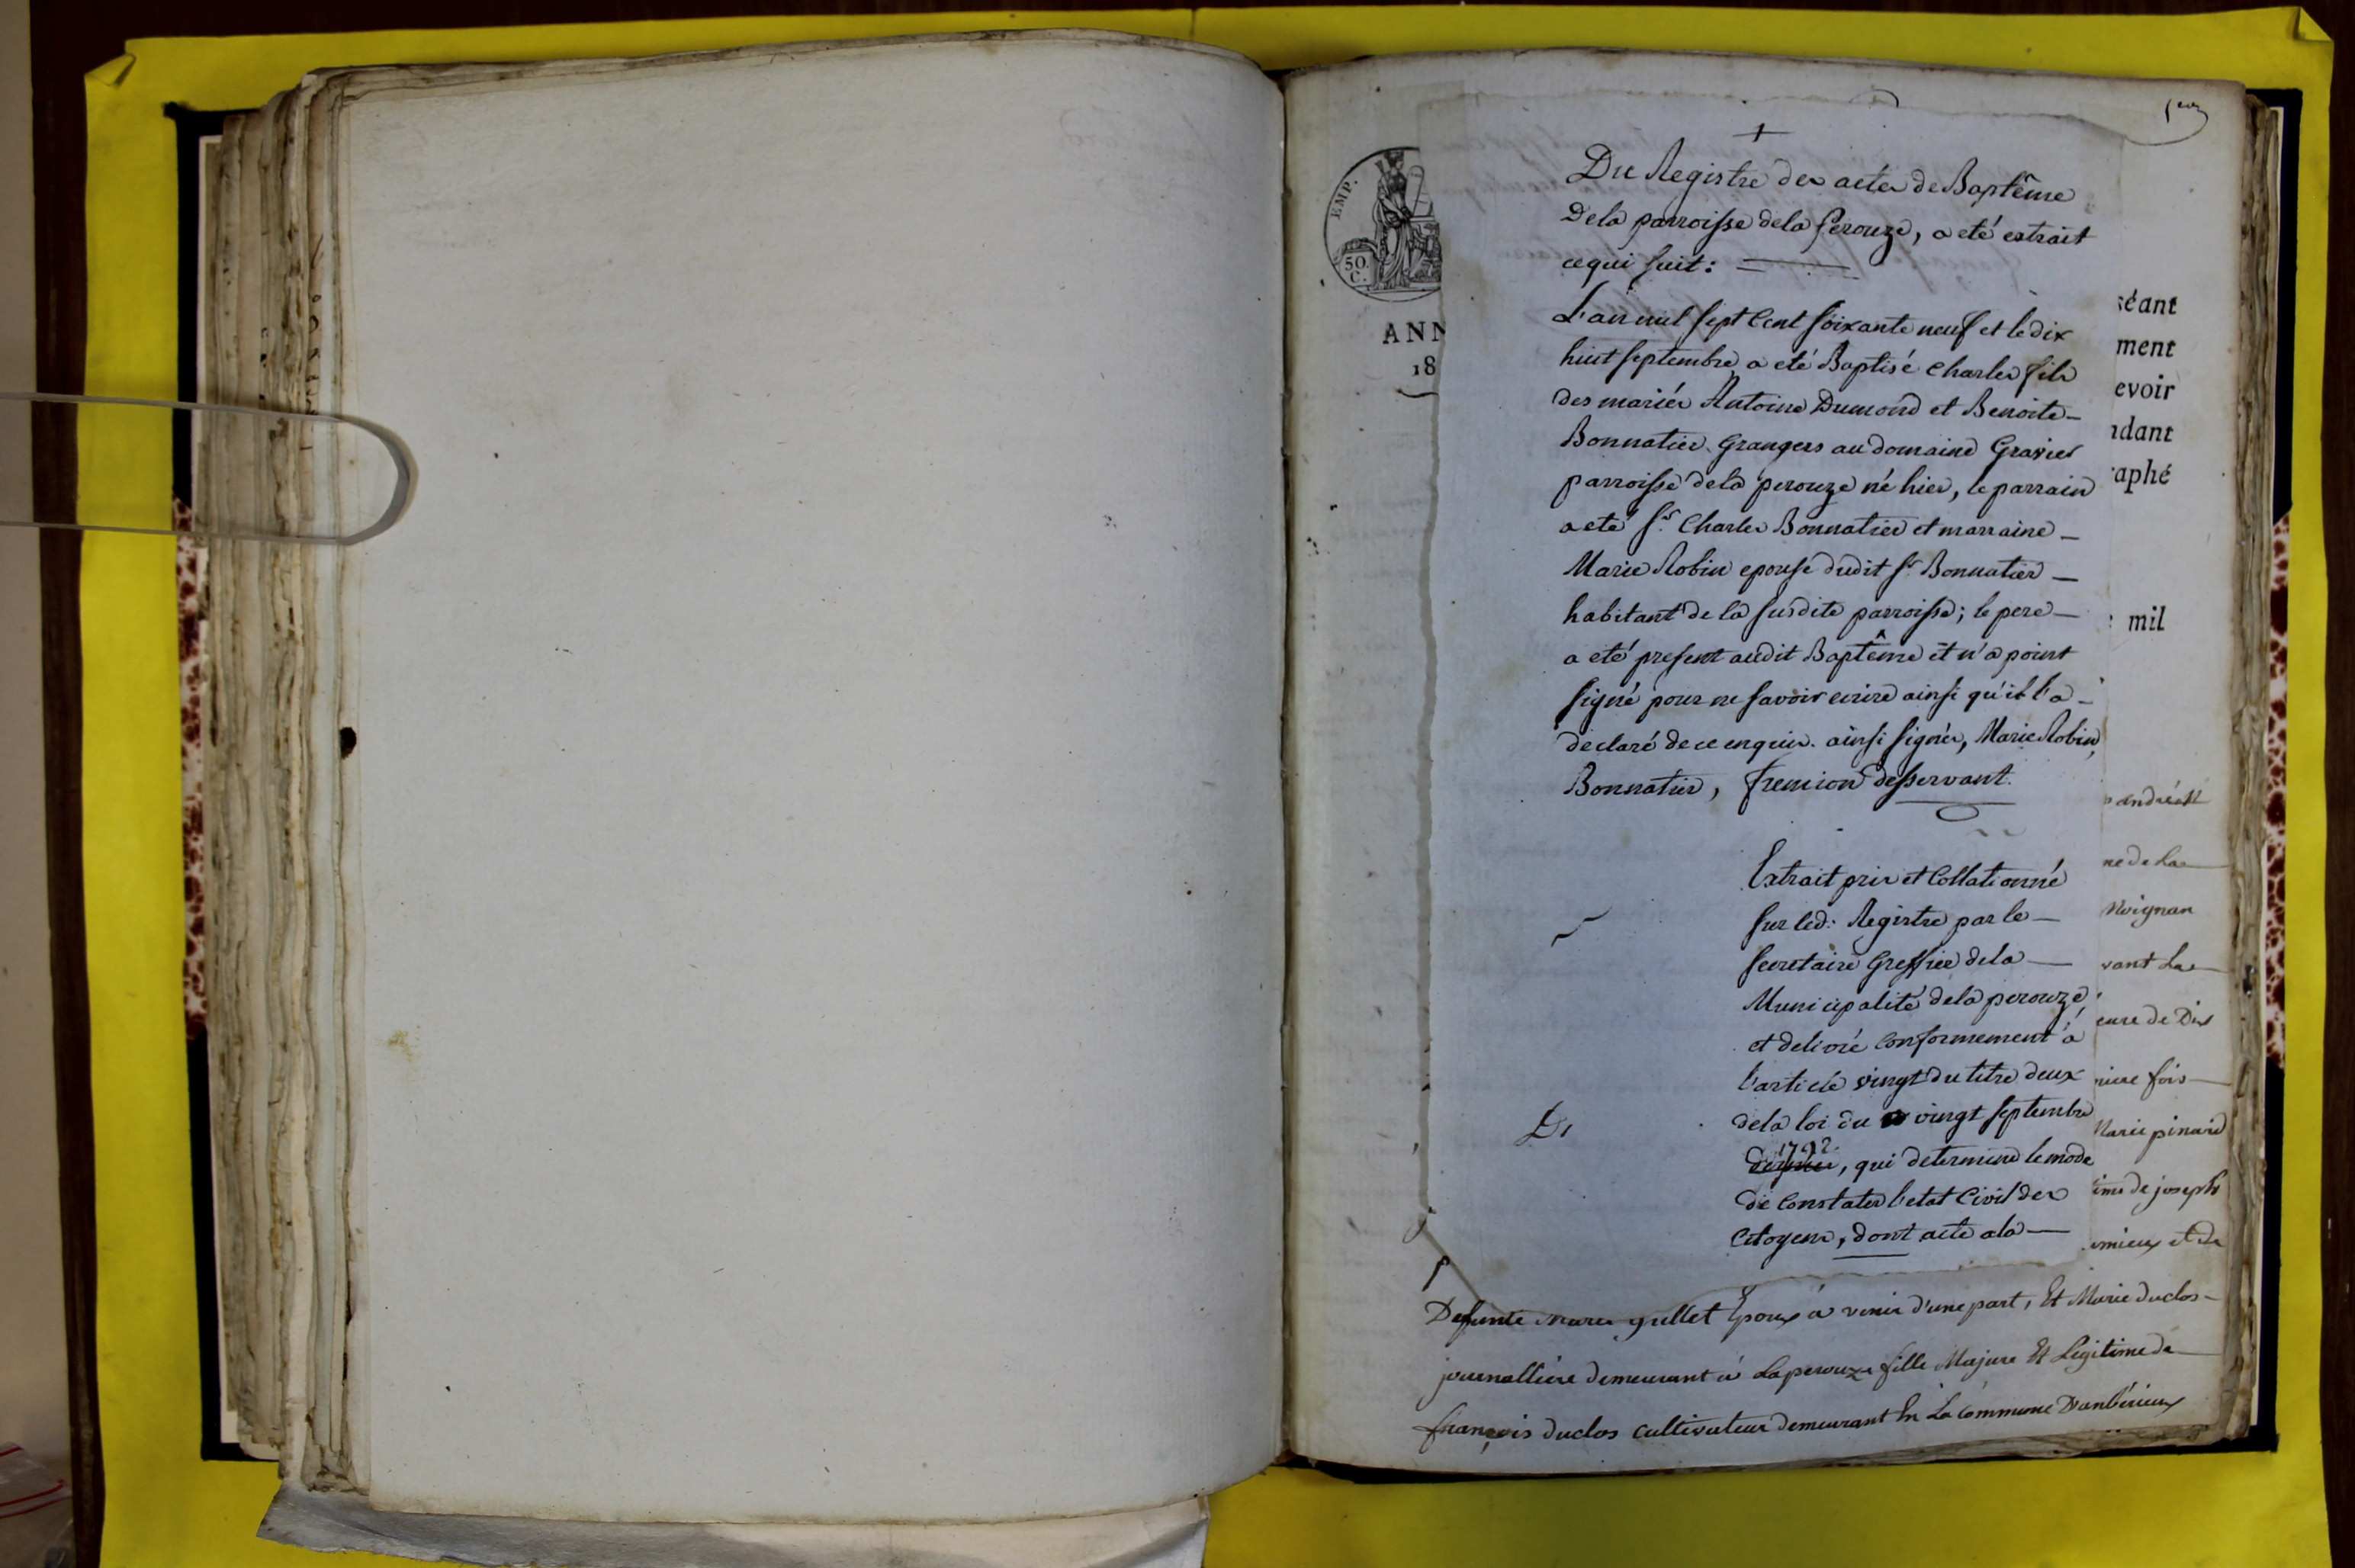 1er
EMP.
50.
C.
ANN
18
Du Registre des actes de Baptême
De la parroisse de la Perouze, a eté extrait
ce qui suit :
L'an mil sept Cent soixante neuf et le dix
huit septembre a eté Baptisé Charles fils
des mariés Antoine Dumond et Benoite
Bonnatier Grangers au domaine Gravier
parroisse de la perouze né hier, le parrain
a eté Sr. Charles Bonnatier et marraine
Marie Robin epouse dudit Sr Bonnatier
habitant de la susdite parroisse ; le pere
a eté present audit Baptême et n'a point
signé pour ne savoir ecrire ainsi qu'il l'a
declaré de ce enquis. ainsi signés, Marie Robin,
Bonnatier, fremion desservant.
Extrait pris et Collationné
sur led: Registre par le
secretaire Greffier de la
Municipalité de la perouze,
et delivré Conformement à
l'article vingt du titre deux
de la loi du vingt septembre
1792
dernier, qui determine le mode
de Constater l'etat Civil des
Citoyens, dont acte a la
éant
ment
evoir
ndant
aphé
mil
andréa
ne de La
Noignan
vant La
eure de Dix
niere fois
Marie pinard
ime de joseph
imieux et de
Defunte marie grillet Epoux à venir d'une part, Et Marie duclos
journalliere demeurant à Laperouze fille Majure Et Legitime de
françois duclos cultivateur demeurant En La Commune D'ambérieux